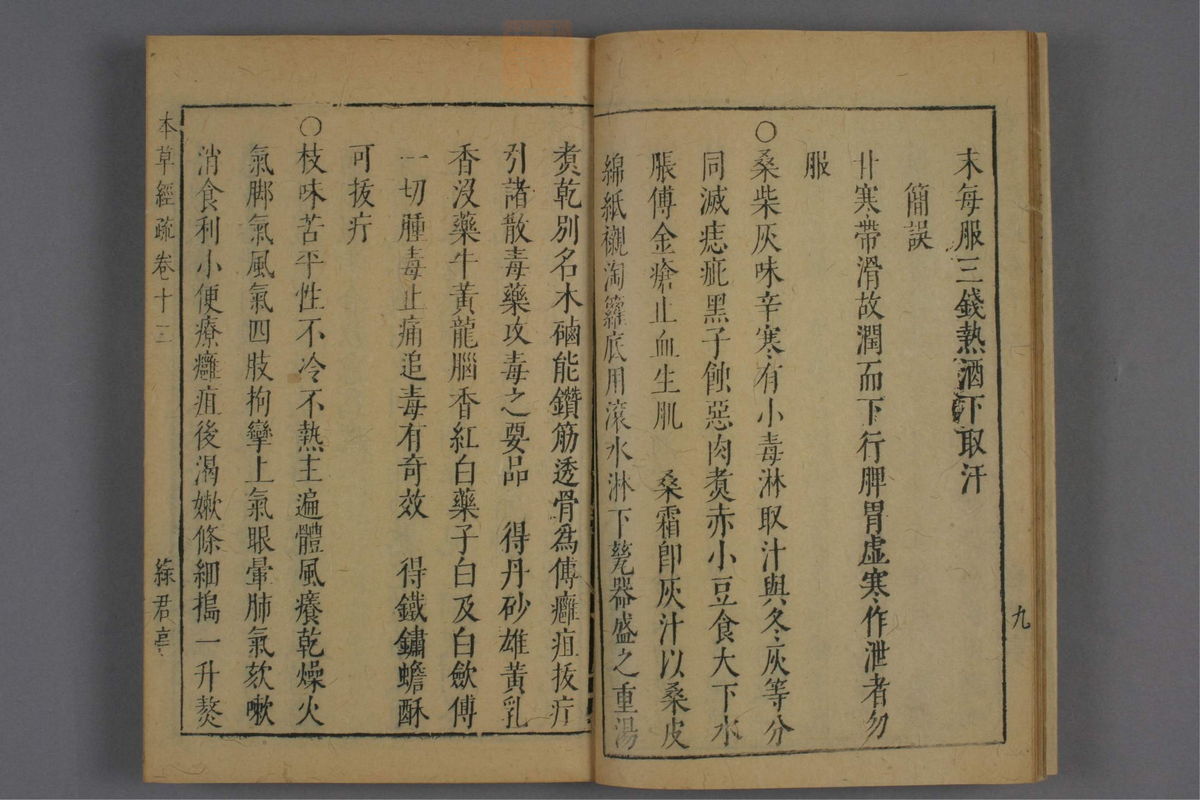 末每服三錢熱酒下取汗
簡誤
甘寒帶滑故潤而下行脾胃虛寒作泄者勿
服
○桑柴灰味辛寒有小毒淋取汁與冬灰等分
同滅痣疵黑子蝕惡肉煮赤小豆食大下水
脹傅金瘡止血生肌　桑霜卽灰汁以桑皮
綿紙襯淘籮底用滾水淋下甆器盛之重湯
九
煮乾別名木磠能鑽筋透骨爲傅癰疽拔疔
引諸散毒藥攻毒之要品　得丹砂雄黃乳
香沒藥牛黃龍腦香紅白藥子白及白歛傅
一切腫毒止痛追毒有奇效　得鐵鏽蟾酥
可拔疔
○枝味苦平性不冷不熱主遍體風癢乾燥火
氣脚氣風氣四肢拘攣上氣眼暈肺氣欬嗽
消食利小便療癰疽後渴嫩條細搗一升熬
本草經疏卷十三
綠君亭